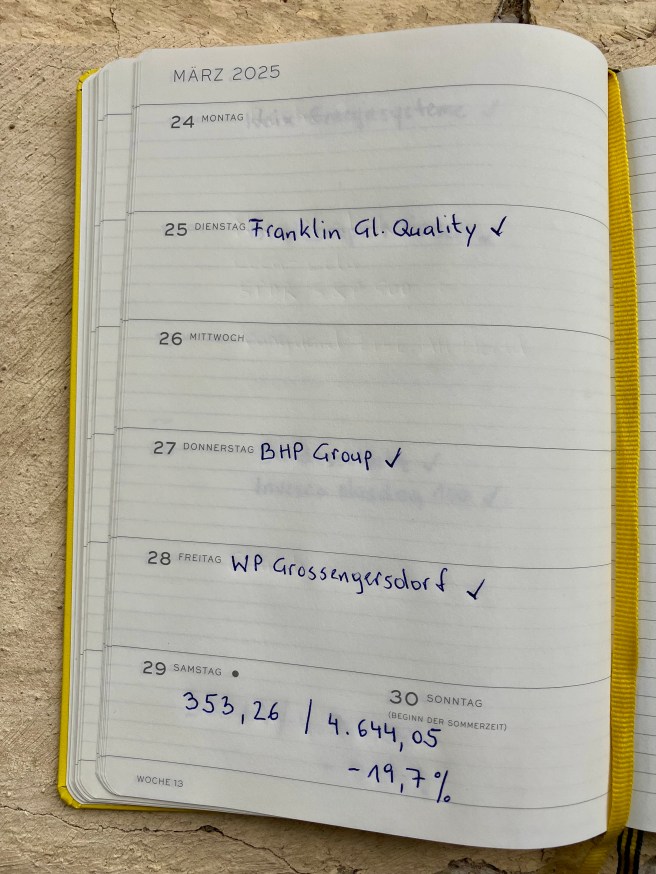 MÄRZ 2025
24 MONTAG
25 DIENSTAG Franklin Gl. Quality ✓
26 MITTWOCH
27 DONNERSTAG BHP Group ✓
28 FREITAG WP Grossengersdorf ✓
29 SAMSTAG ●
353,26 |
30 SONNTAG
(BEGINN DER SOMMERZEIT)
4.644,05
-19,7%
WOCHE 13